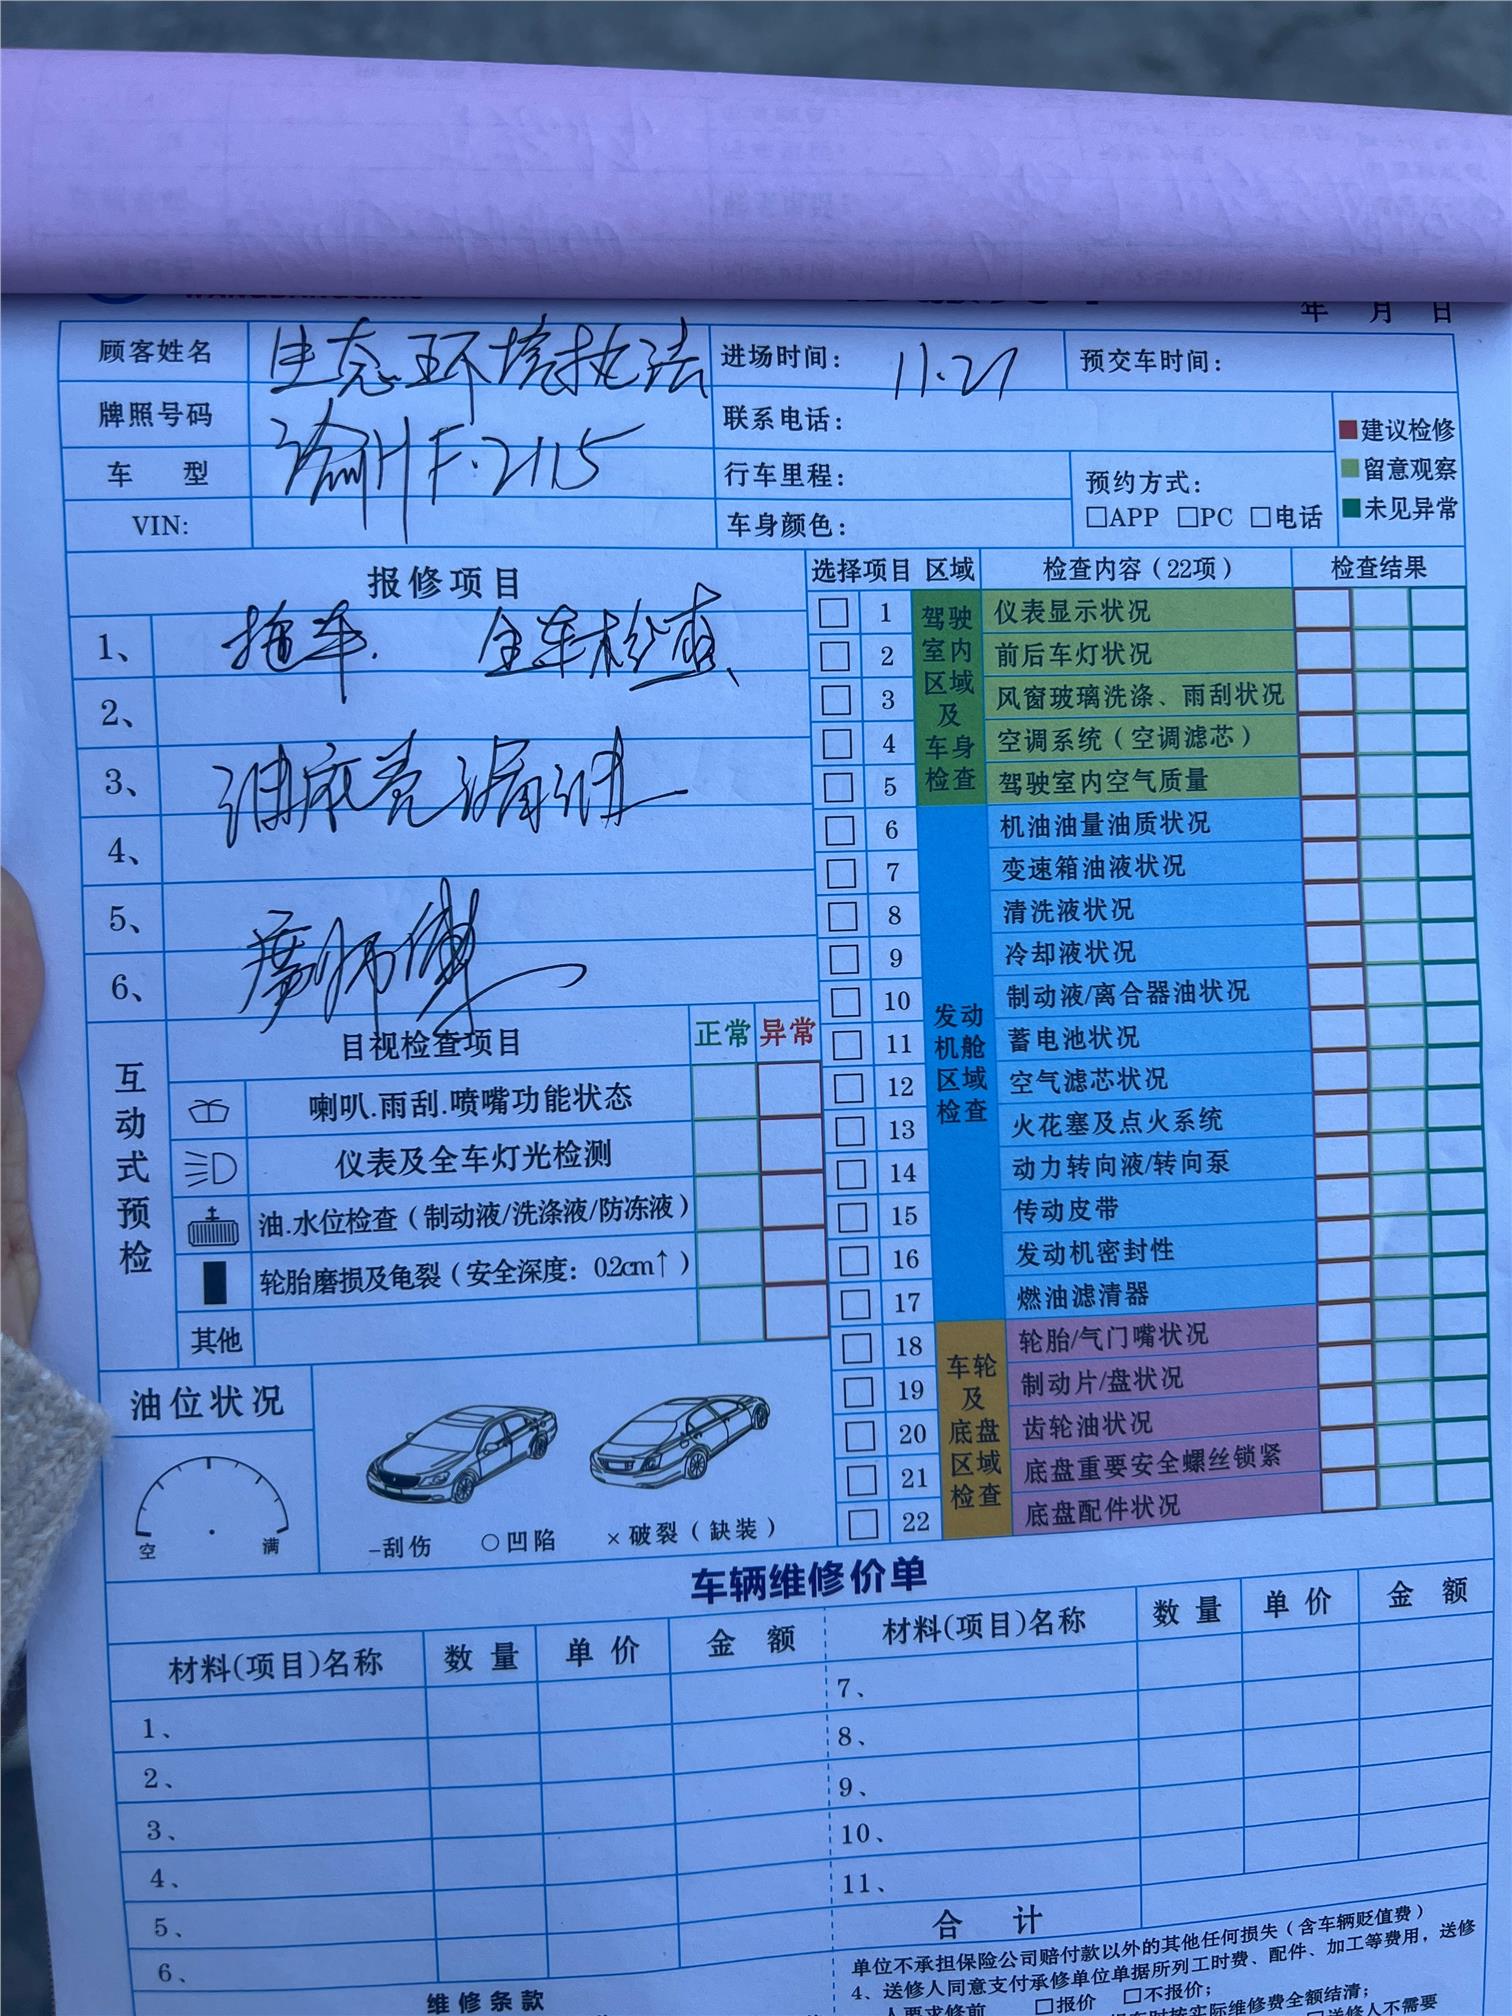 年 月 日
顾客姓名 生态环境执法 进场时间： 11.27 预交车时间：
牌照号码 渝HF·2115 联系电话：
建议检修
车 型 行车里程： 预约方式：
留意观察
□APP □PC □电话
未见异常
VIN: 车身颜色：
报修项目
1、 拖车. 全车检查、
2、
3、 油底壳漏油
4、
5、
6、 师傅
选择项目 区域 检查内容（22项） 检查结果
驾驶室内区域及车身检查
□ 1 仪表显示状况
□ 2 前后车灯状况
□ 3 风窗玻璃洗涤、雨刮状况
□ 4 空调系统（空调滤芯）
□ 5 驾驶室内空气质量
发动机舱区域检查
□ 6 机油油量油质状况
□ 7 变速箱油液状况
□ 8 清洗液状况
□ 9 冷却液状况
□ 10 制动液/离合器油状况
□ 11 蓄电池状况
□ 12 空气滤芯状况
□ 13 火花塞及点火系统
□ 14 动力转向液/转向泵
□ 15 传动皮带
□ 16 发动机密封性
□ 17 燃油滤清器
车轮及底盘区域检查
□ 18 轮胎/气门嘴状况
□ 19 制动片/盘状况
□ 20 齿轮油状况
□ 21 底盘重要安全螺丝锁紧
□ 22 底盘配件状况
互动式预检
目视检查项目 正常 异常
喇叭.雨刮.喷嘴功能状态
仪表及全车灯光检测
油.水位检查（制动液/洗涤液/防冻液）
轮胎磨损及龟裂（安全深度：0.2cm↑）
其他
油位状况
空 满
-刮伤 ○凹陷 ×破裂（缺装）
车辆维修价单
材料(项目)名称 数量 单价 金额 材料(项目)名称 数量 单价 金额
1、 7、
2、 8、
3、 9、
4、 10、
5、 11、
6、 合计
维修条款
单位不承担保险公司赔付款以外的其他任何损失（含车辆贬值费）
4、送修人同意支付承修单位单据所列工时费、配件、加工等费用，送修
人要求修前 □报价 □不报价；
按实际维修费全额结清；
□送修人不需要